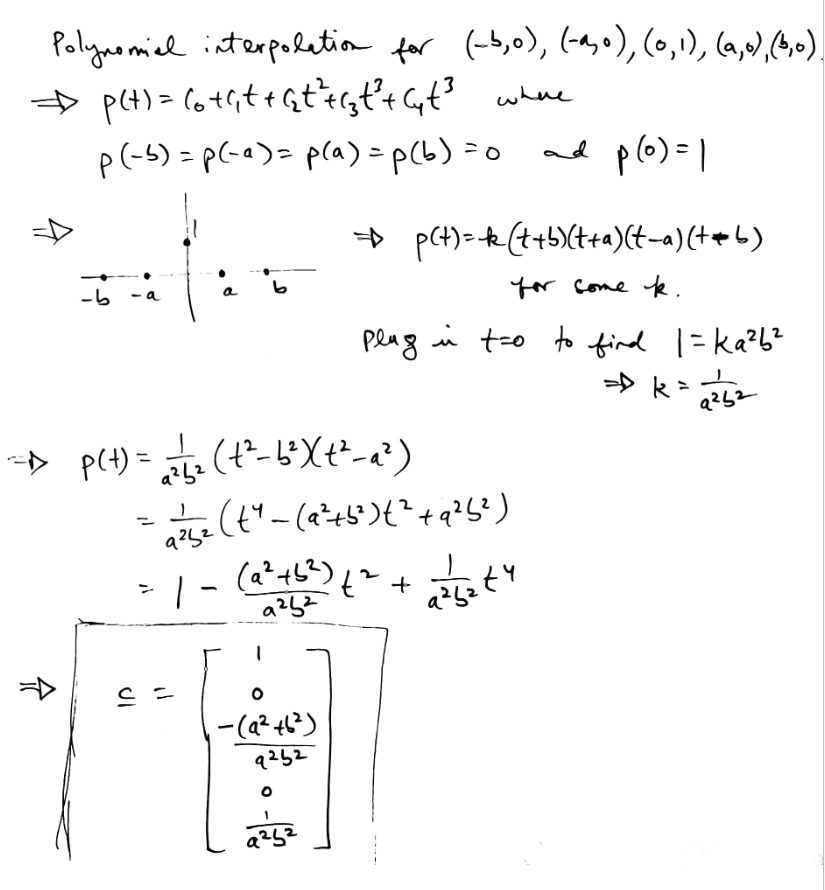 Polynomial interpolation for (-b,0), (-a,0), (0,1), (a,0), (b,0).
⇒ p(t) = c₀+c₁t+c₂t²+c₃t³+c₄t³ where
p(-b) = p(-a) = p(a) = p(b) = 0 and p(0) = 1
⇒ 1 -b -a a b
⇒ p(t) = k(t+b)(t+a)(t-a)(t-b)
for some k.
Plug in t=0 to find 1 = ka²b²
⇒ k = 1/a²b²
⇒ p(t) = 1/a²b² (t²-b²)(t²-a²)
= 1/a²b² (t⁴ - (a²+b²)t² + a²b²)
= 1 - (a²+b²)/a²b² t² + 1/a²b² t⁴
⇒ c = [
1
0
-(a²+b²)/a²b²
0
1/a²b²
]